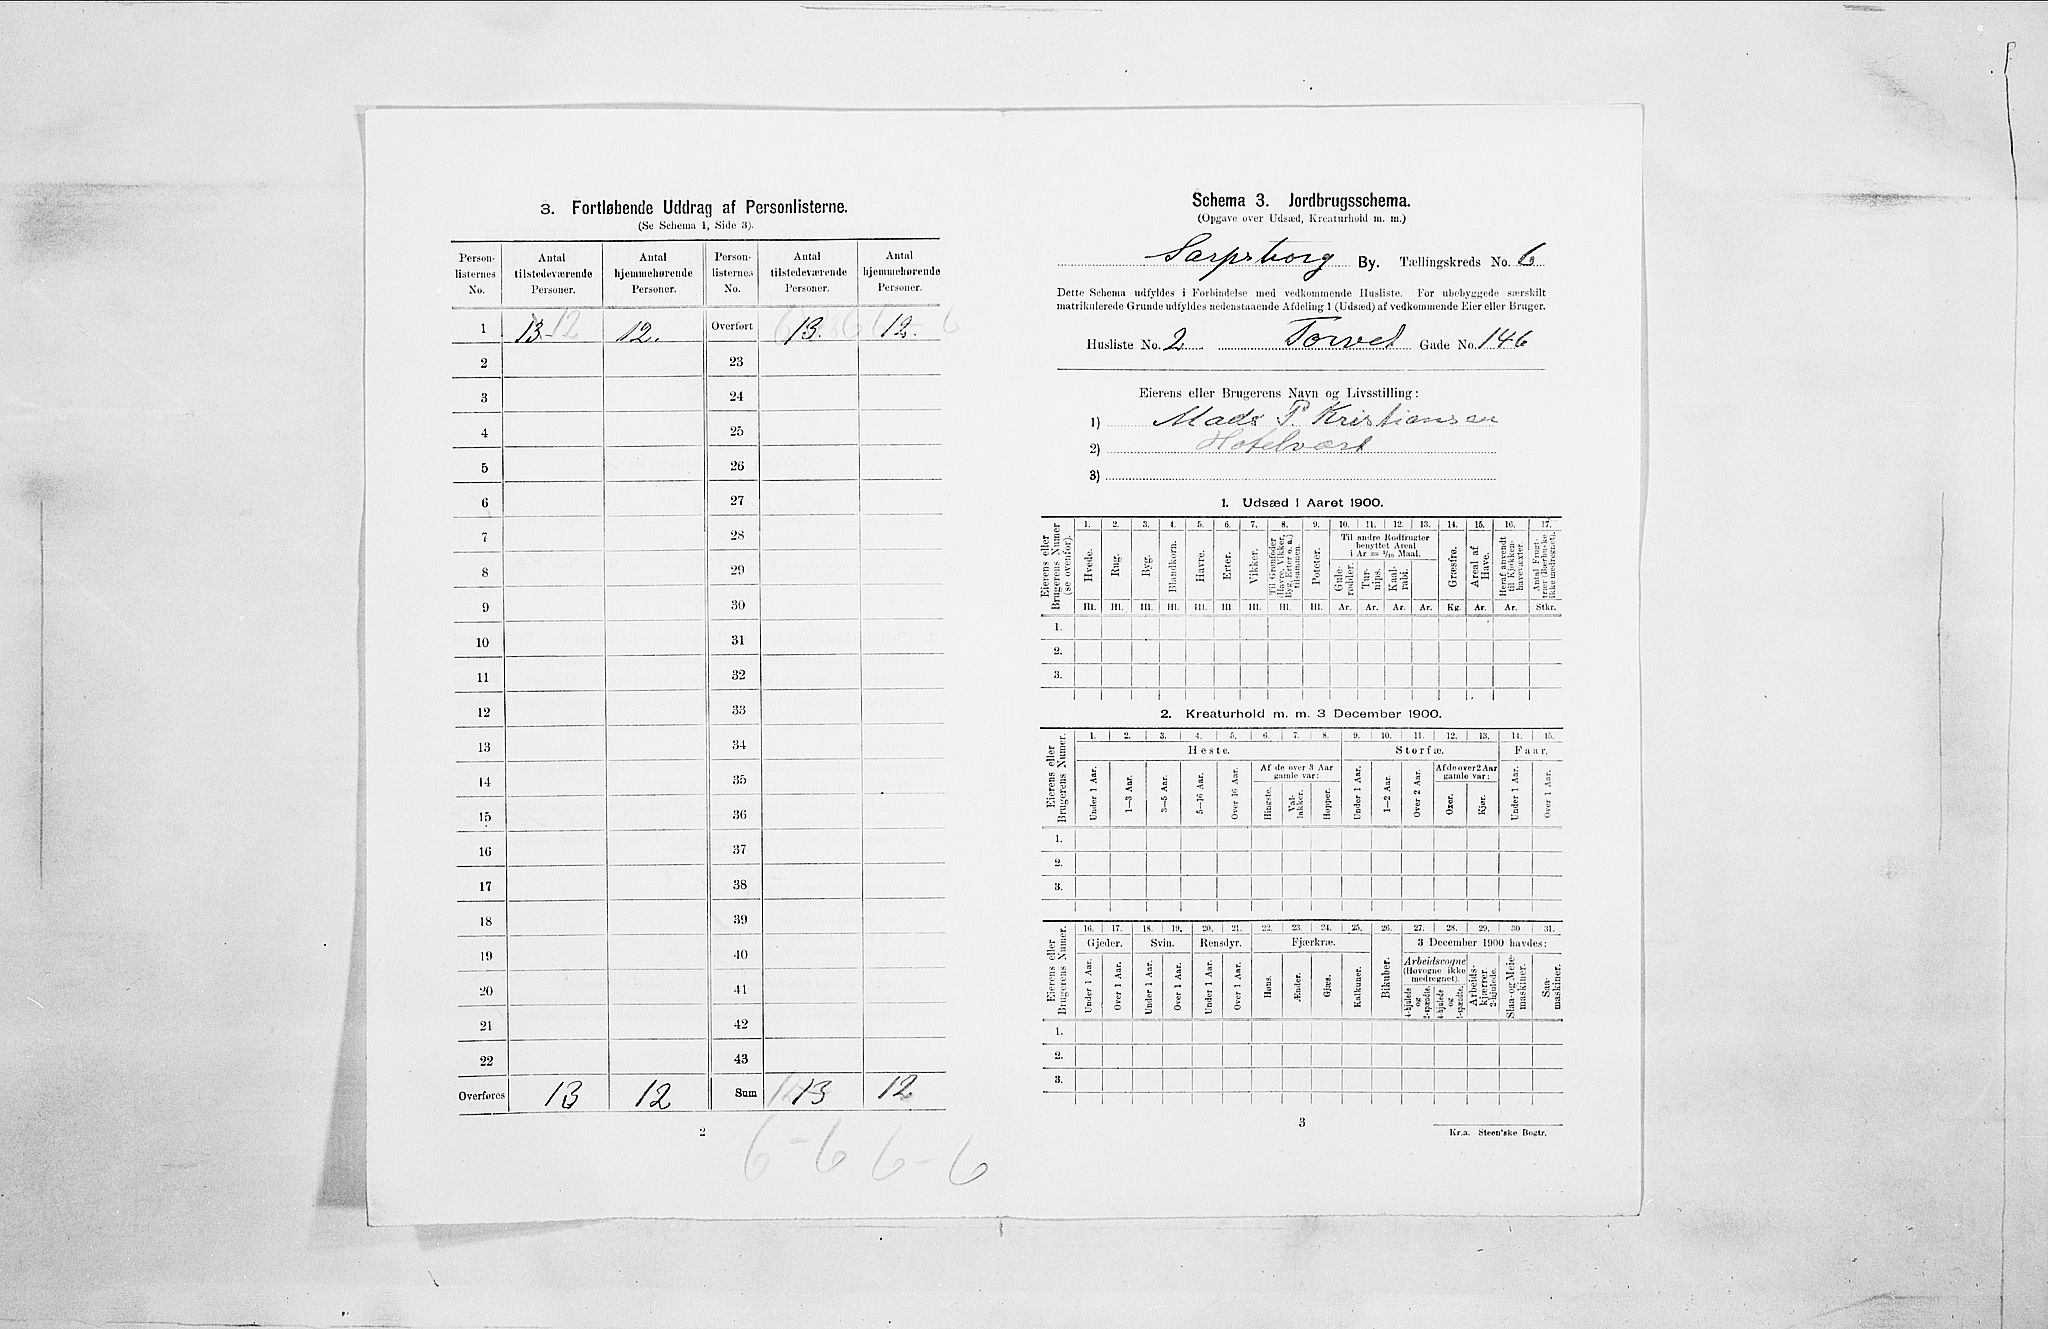 3. Fortløbende Uddrag af Personlisterne.
(Se Schema 1, Side 3).
Person-listernes No. Antal tilstedeværende Personer. Antal hjemmehørende Personer. Person-listernes No. Antal tilstedeværende Personer. Antal hjemmehørende Personer.
1 13 - 12 12. Overført 13. 12.
2 23
3 24
4 25
5 26
6 27
7 28
8 29
9 30
10 31
11 32
12 33
13 34
14 35
15 36
16 37
17 38
18 39
19 40
20 41
21 42
22 43
Overføres 13 12 Sum 13 12
2
6 - 6 6 - 6
Schema 3. Jordbrugsschema.
(Opgave over Udsæd, Kreaturhold m. m.)
Sarpsborg By. Tællingskreds No. 6
Dette Schema udfyldes i Forbindelse med vedkommende Husliste. For ubebyggede særskilt
matrikulerede Grunde udfyldes nedenstaaende Afdeling 1 (Udsæd) af vedkommende Eier eller Bruger.
Husliste No. 2 Torvet Gade No. 146
Eierens eller Brugerens Navn og Livsstilling:
1) Mads P. Kristiansen
2) Hotelvært
3)
1. Udsæd i Aaret 1900.
Eierens eller Brugerens Numer (se ovenfor).
1. 2. 3. 4. 5. 6. 7. 8. 9. 10. 11. 12. 13. 14. 15. 16. 17.
Til andre Rodfrugter benyttet Areal i Ar = 1/10 Maal.
Hvede. Rug. Byg. Blandkorn. Havre. Erter. Vikker. Til Grønfoder (Havre, Vikker, Byg, Erter o. a.) tilsammen. Poteter. Gule-rødder. Tur-nips. Kaal-rabi. Græsfrø. Areal af Have. Heraf anvendt til Kjøkken-havevæxter. Antal Frugt-træer (Bærbuske ikke medregnet).
Hl. Hl. Hl. Hl. Hl. Hl. Hl. Hl. Hl. Ar. Ar. Ar. Ar. Kg. Ar. Ar. Stkr.
1.
2.
3.
2. Kreaturhold m. m. 3 December 1900.
Eierens eller Brugerens Numer.
1. 2. 3. 4. 5. 6. 7. 8. 9. 10. 11. 12. 13. 14. 15.
Heste. Storfæ. Faar.
Af de over 3 Aar gamle var: Af de over 2 Aar gamle var:
Under 1 Aar. 1—3 Aar. 3—5 Aar. 5—16 Aar. Over 16 Aar. Hingste. Val-lakker. Hopper. Under 1 Aar. 1—2 Aar. Over 2 Aar. Oxer. Kjør. Under 1 Aar. Over 1 Aar.
1.
2.
3.
Eierens eller Brugerens Numer.
16. 17. 18. 19. 20. 21. 22. 23. 24. 25. 26. 27. 28. 29. 30 31.
Gjeder. Svin. Rensdyr. Fjærkræ. 3 December 1900 havdes:
Arbeidsvogne (Høvogne ikke medregnet).
Under 1 Aar. Over 1 Aar. Under 1 Aar. Over 1 Aar. Under 1 Aar. Over 1 Aar. Høns. Ænder. Gjæs. Kalkuner. Bikuber. 4-hjulede og 2-spændte. 4-hjulede og 1-spændte. Arbeids-kjærrer, 2-hjulede. Slaa- og Meie-maskiner. Saa-maskiner.
1.
2.
3.
3
Kr.a. Steen'ske Bogtr.